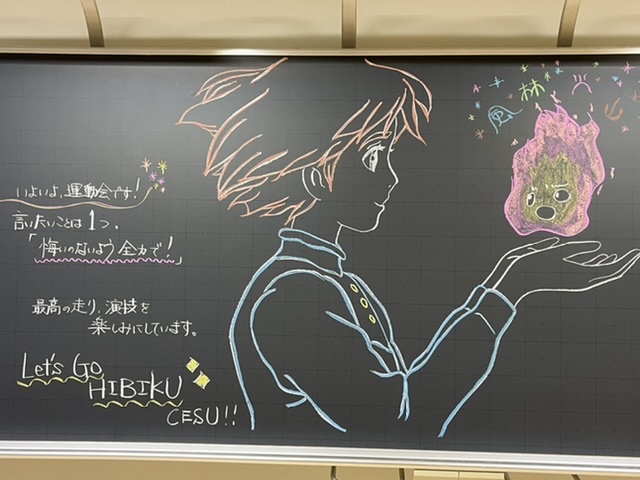 いよいよ、運動会です！
言いたいことは1つ。
「悔いのないよう全力で！」
最高の走り、演技を
楽しみにしています。
Let's Go
HIBIKU
CESU!!
林
風